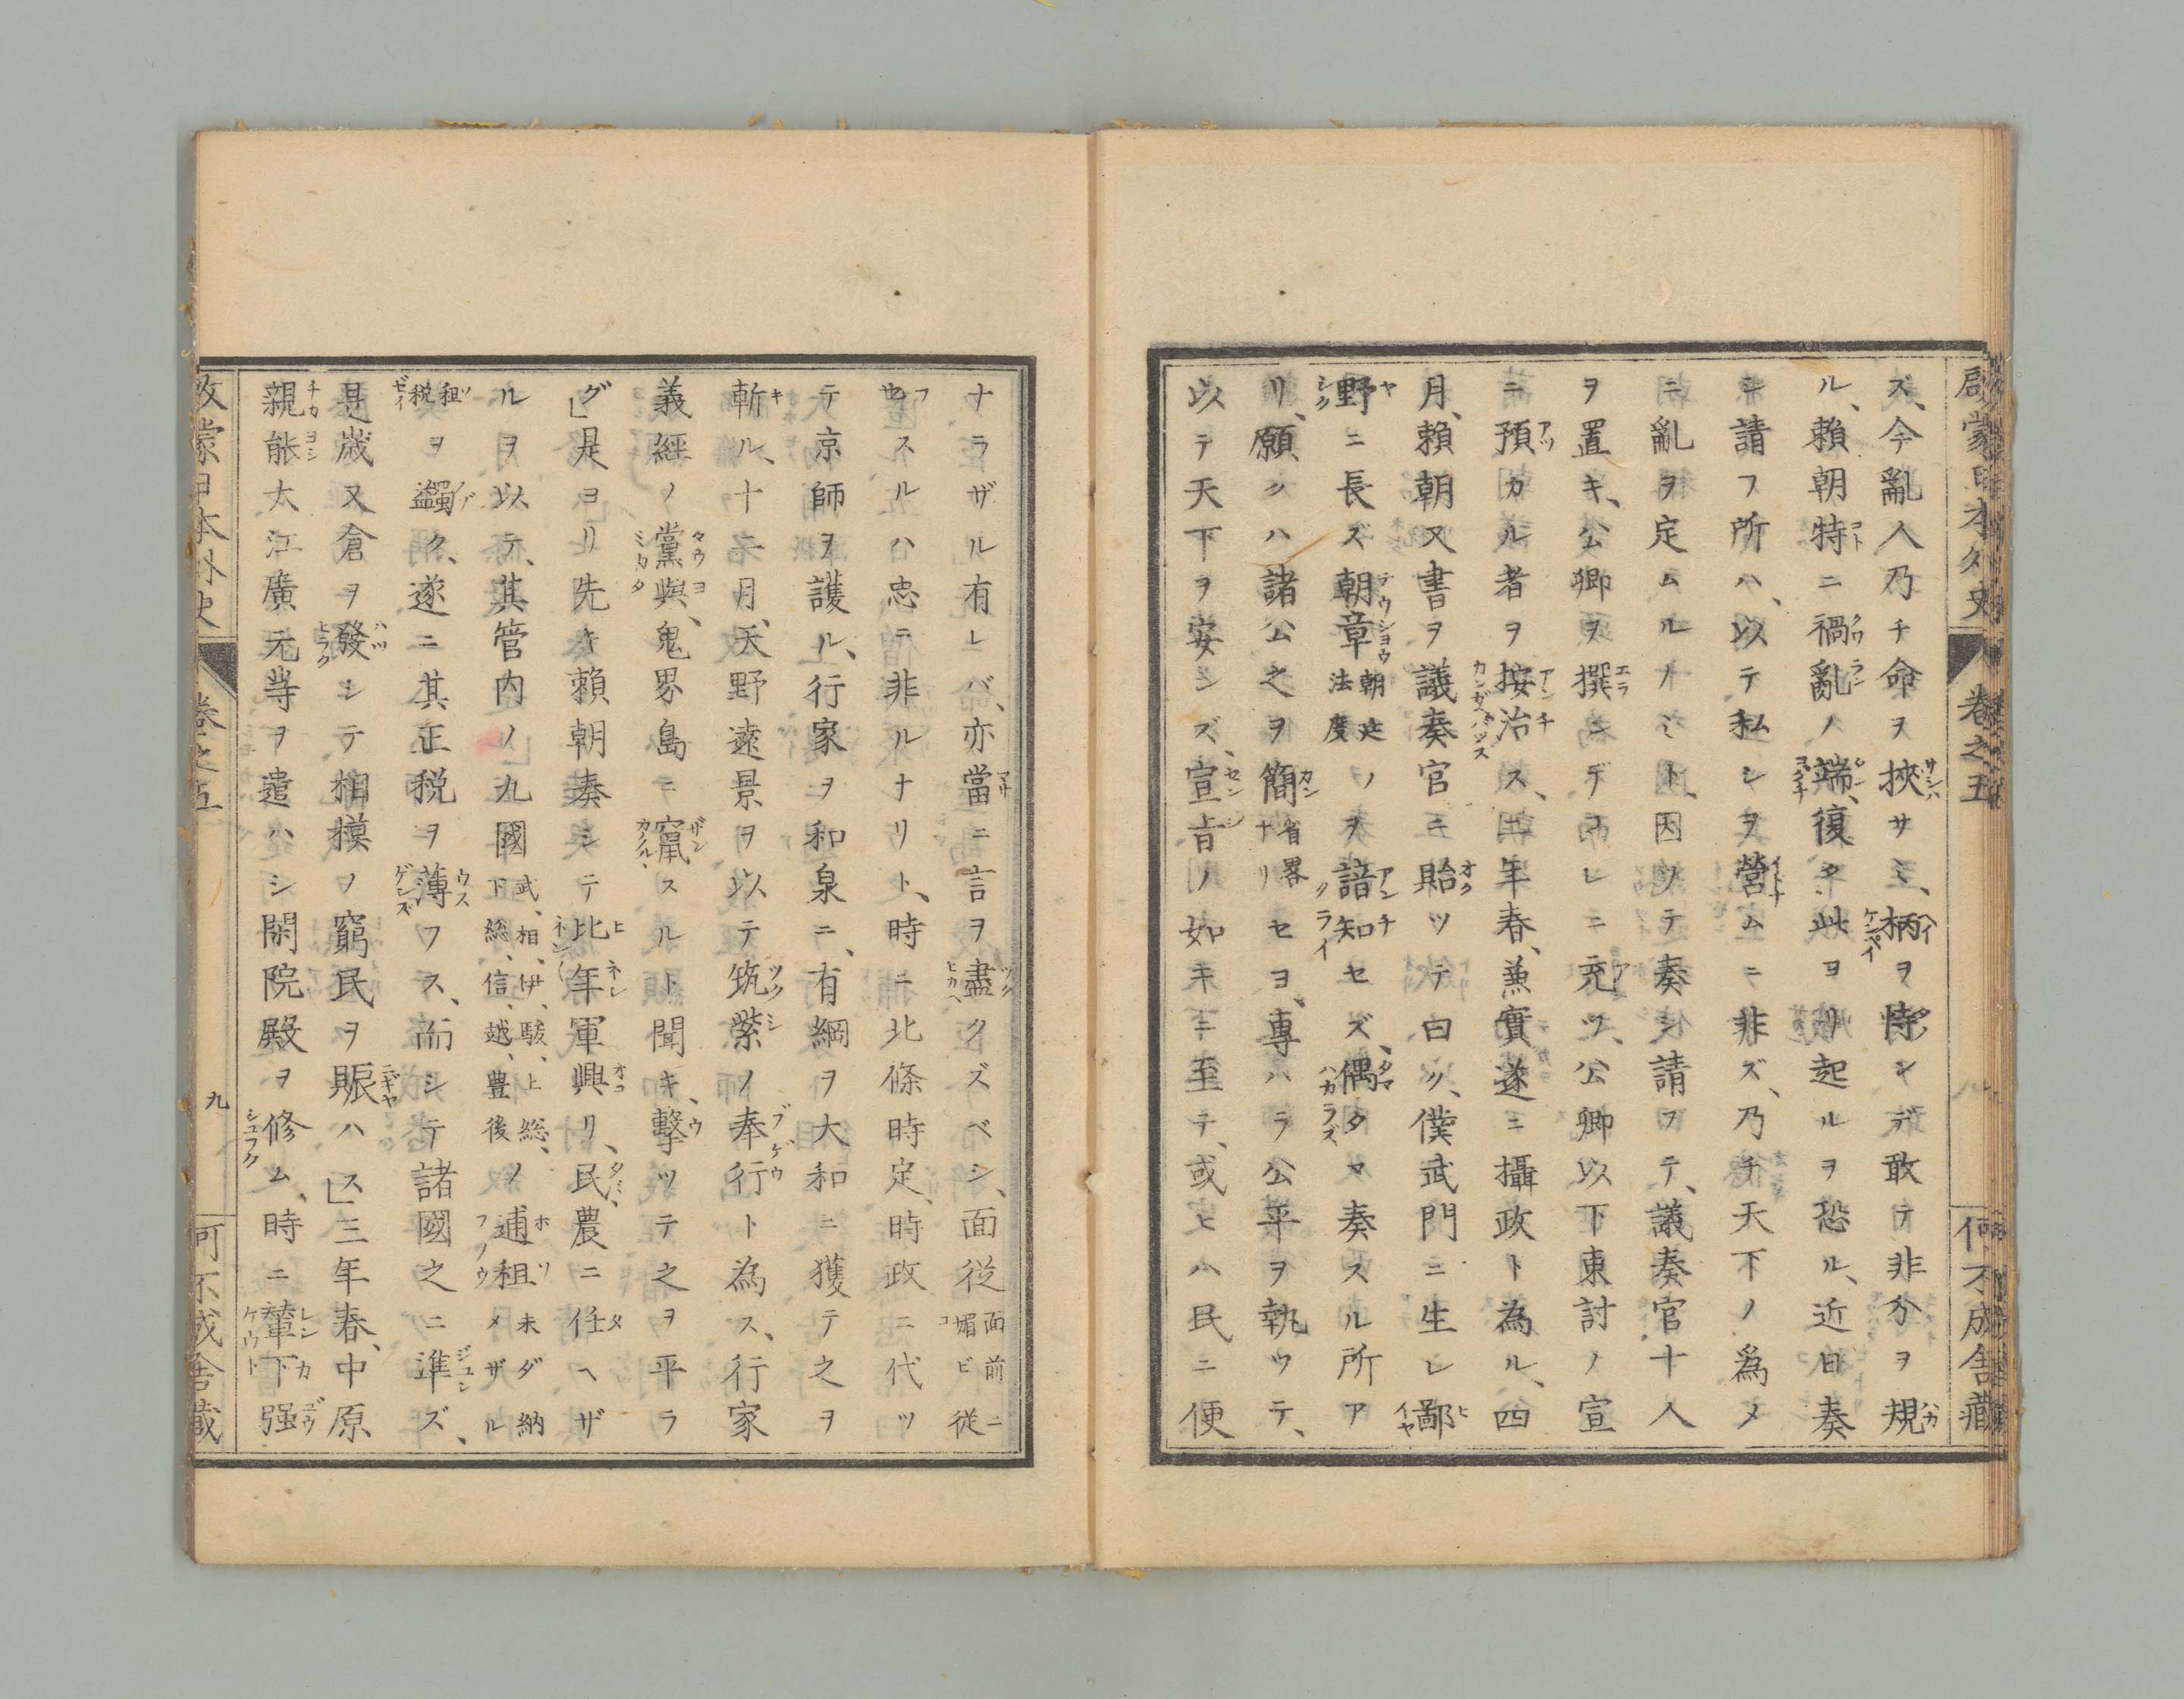 啓蒙日本外史 卷之五 何不成舍藏
ズ、今亂人乃チ命ヲ挾サミ、柄ヲ恃ンデ敢テ非分ヲ規
ル、賴朝特ニ禍亂ノ端、復タ此ヨリ起ルヲ恐ル、近日奏
シ請フ所ハ、以テ私シヲ營ムニ非ズ、乃チ天下ノ爲メ
ニ亂ヲ定ムルノミト、因ツテ奏シ請フテ、議奏官十人
ヲ置キ、公卿ヲ撰ンデコレニ充ツ、公卿以下東討ノ宣
ニ預カル者ヲ按治ス、四年春、兼實遂ニ攝政ト為ル、四
月、賴朝又書ヲ議奏官ニ貽ツテ曰ク、僕武門ニ生レ鄙
野ニ長ズ、朝章朝廷法度ノヲ諳知セズ、偶タマ奏スル所ア
リ、願クハ諸公之ヲ簡省畧ナリセヨ、專ハラ公平ヲ執ツテ、
以テ天下ヲ安ンズ、宣旨ノ如キニ至テ、或ヒハ民ニ便
ナラザル有レバ、亦當ニ言ヲ盡クズベシ、面從面前ニ從媚ビコ
フセスルハ忠ニ非ルナリト、時ニ北條時定、時政ニ代ツ
テ京師ヲ護ル、行家ヲ和泉ニ、有綱ヲ大和ニ獲テ之ヲ
斬ル、十二月、天野遠景ヲ以テ筑紫ノ奉行ト為ス、行家
義經ノ黨與、鬼界島ニ竄スルト聞キ、擊ツテ之ヲ平ラ
グ」是ヨリ先キ賴朝奏シテ比年軍興リ、民農ニ任ヘザ
ルヲ以テ、其管内ノ九國武、相、伊、駿、上総、下総、信、越、豊後、ノ逋租未ダ納メザル
租税ヲ蠲ク、遂ニ其正税ヲ薄フス、而シテ諸國之ニ準ズ、
是歲又倉ヲ發シテ、相摸ノ窮民ヲ賑ハス」三年春、中原
親能太江廣元等ヲ遣ハシ閑院殿ヲ修ム、時ニ輦下强
啓蒙日本外史 卷之五 九 何不成舍藏